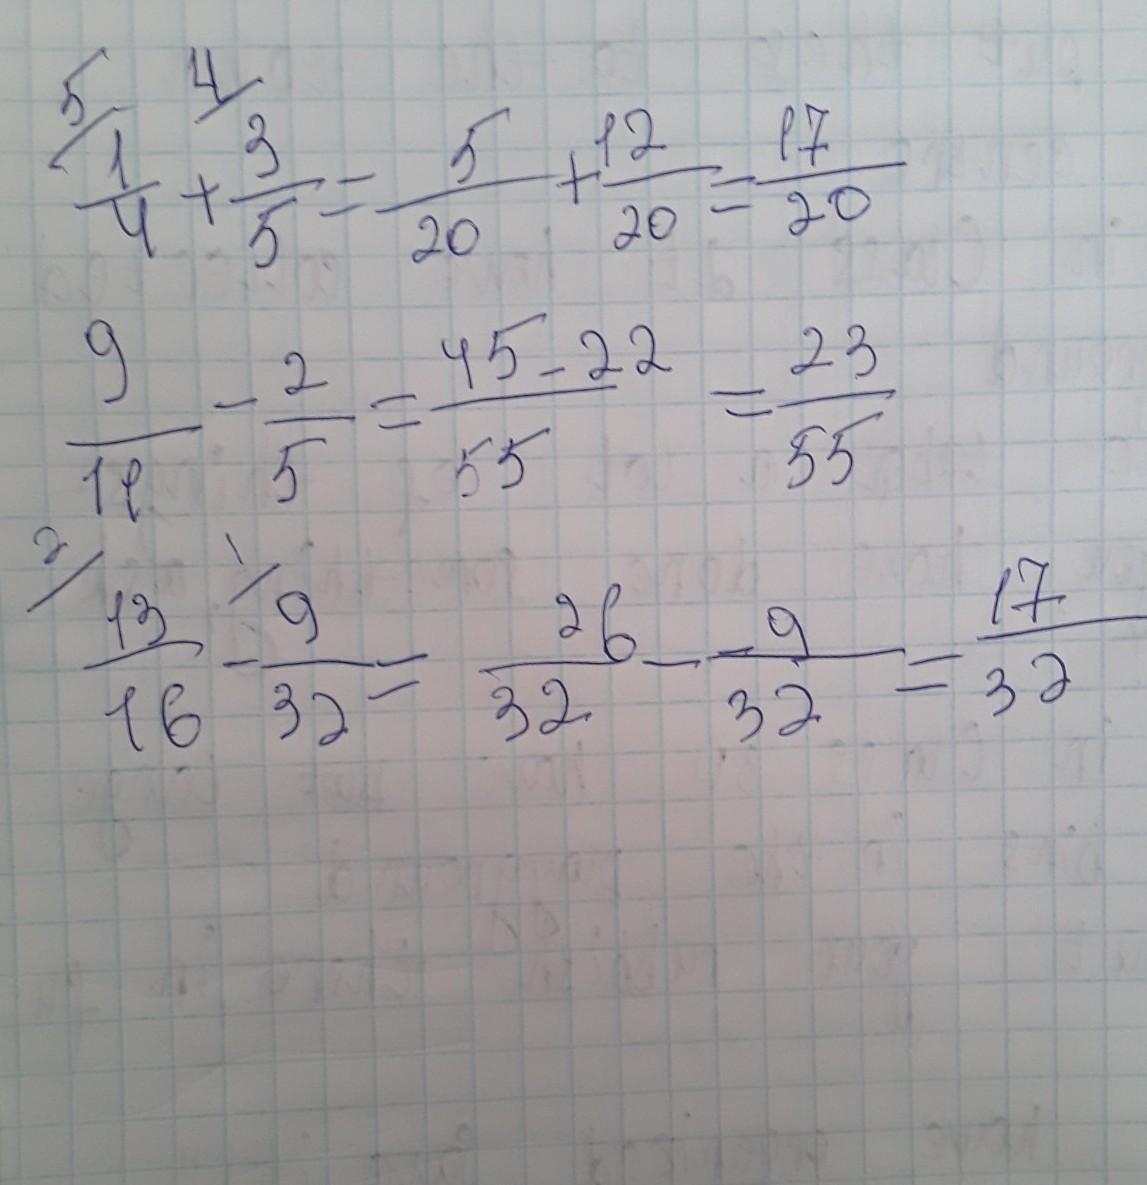 5/ 1/4 + 4/ 3/5 = 5/20 + 12/20 = 17/20
9/11 - 2/5 = 45-22/55 = 23/55
2/ 13/16 - 1/ 9/32 = 26/32 - 9/32 = 17/32